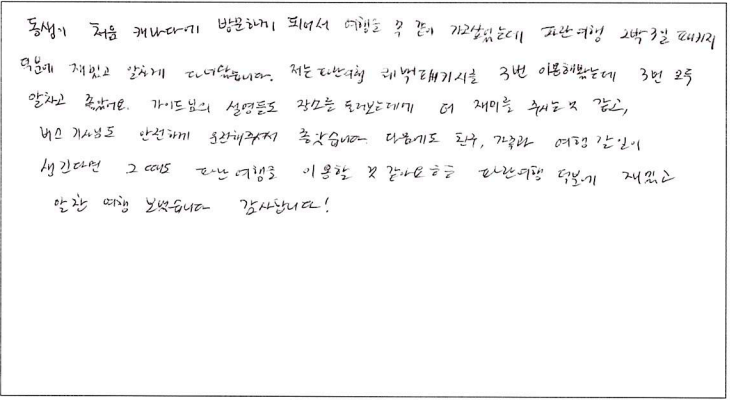 동생이 처음 캐나다에 방문하게 되어서 여행을 꼭 같이 가고싶었는데 파란여행 2박3일 패키지
덕분에 재밌고 알차게 다녀왔습니다. 저는 파란여행 퀘벡패키지를 3번 이용해봤는데 3번 모두
알차고 좋았어요. 가이드님의 설명들도 장소를 둘러보는데에 더 재미를 주시는것 같고,
버스 기사님도 안전하게 운전해주셔서 좋았습니다. 다음에도 친구, 가족과 여행갈일이
생긴다면 그때도 파란여행을 이용할 것 같아요ㅎㅎ 파란여행 덕분에 재밌고
알찬 여행 보냈습니다 감사합니다!